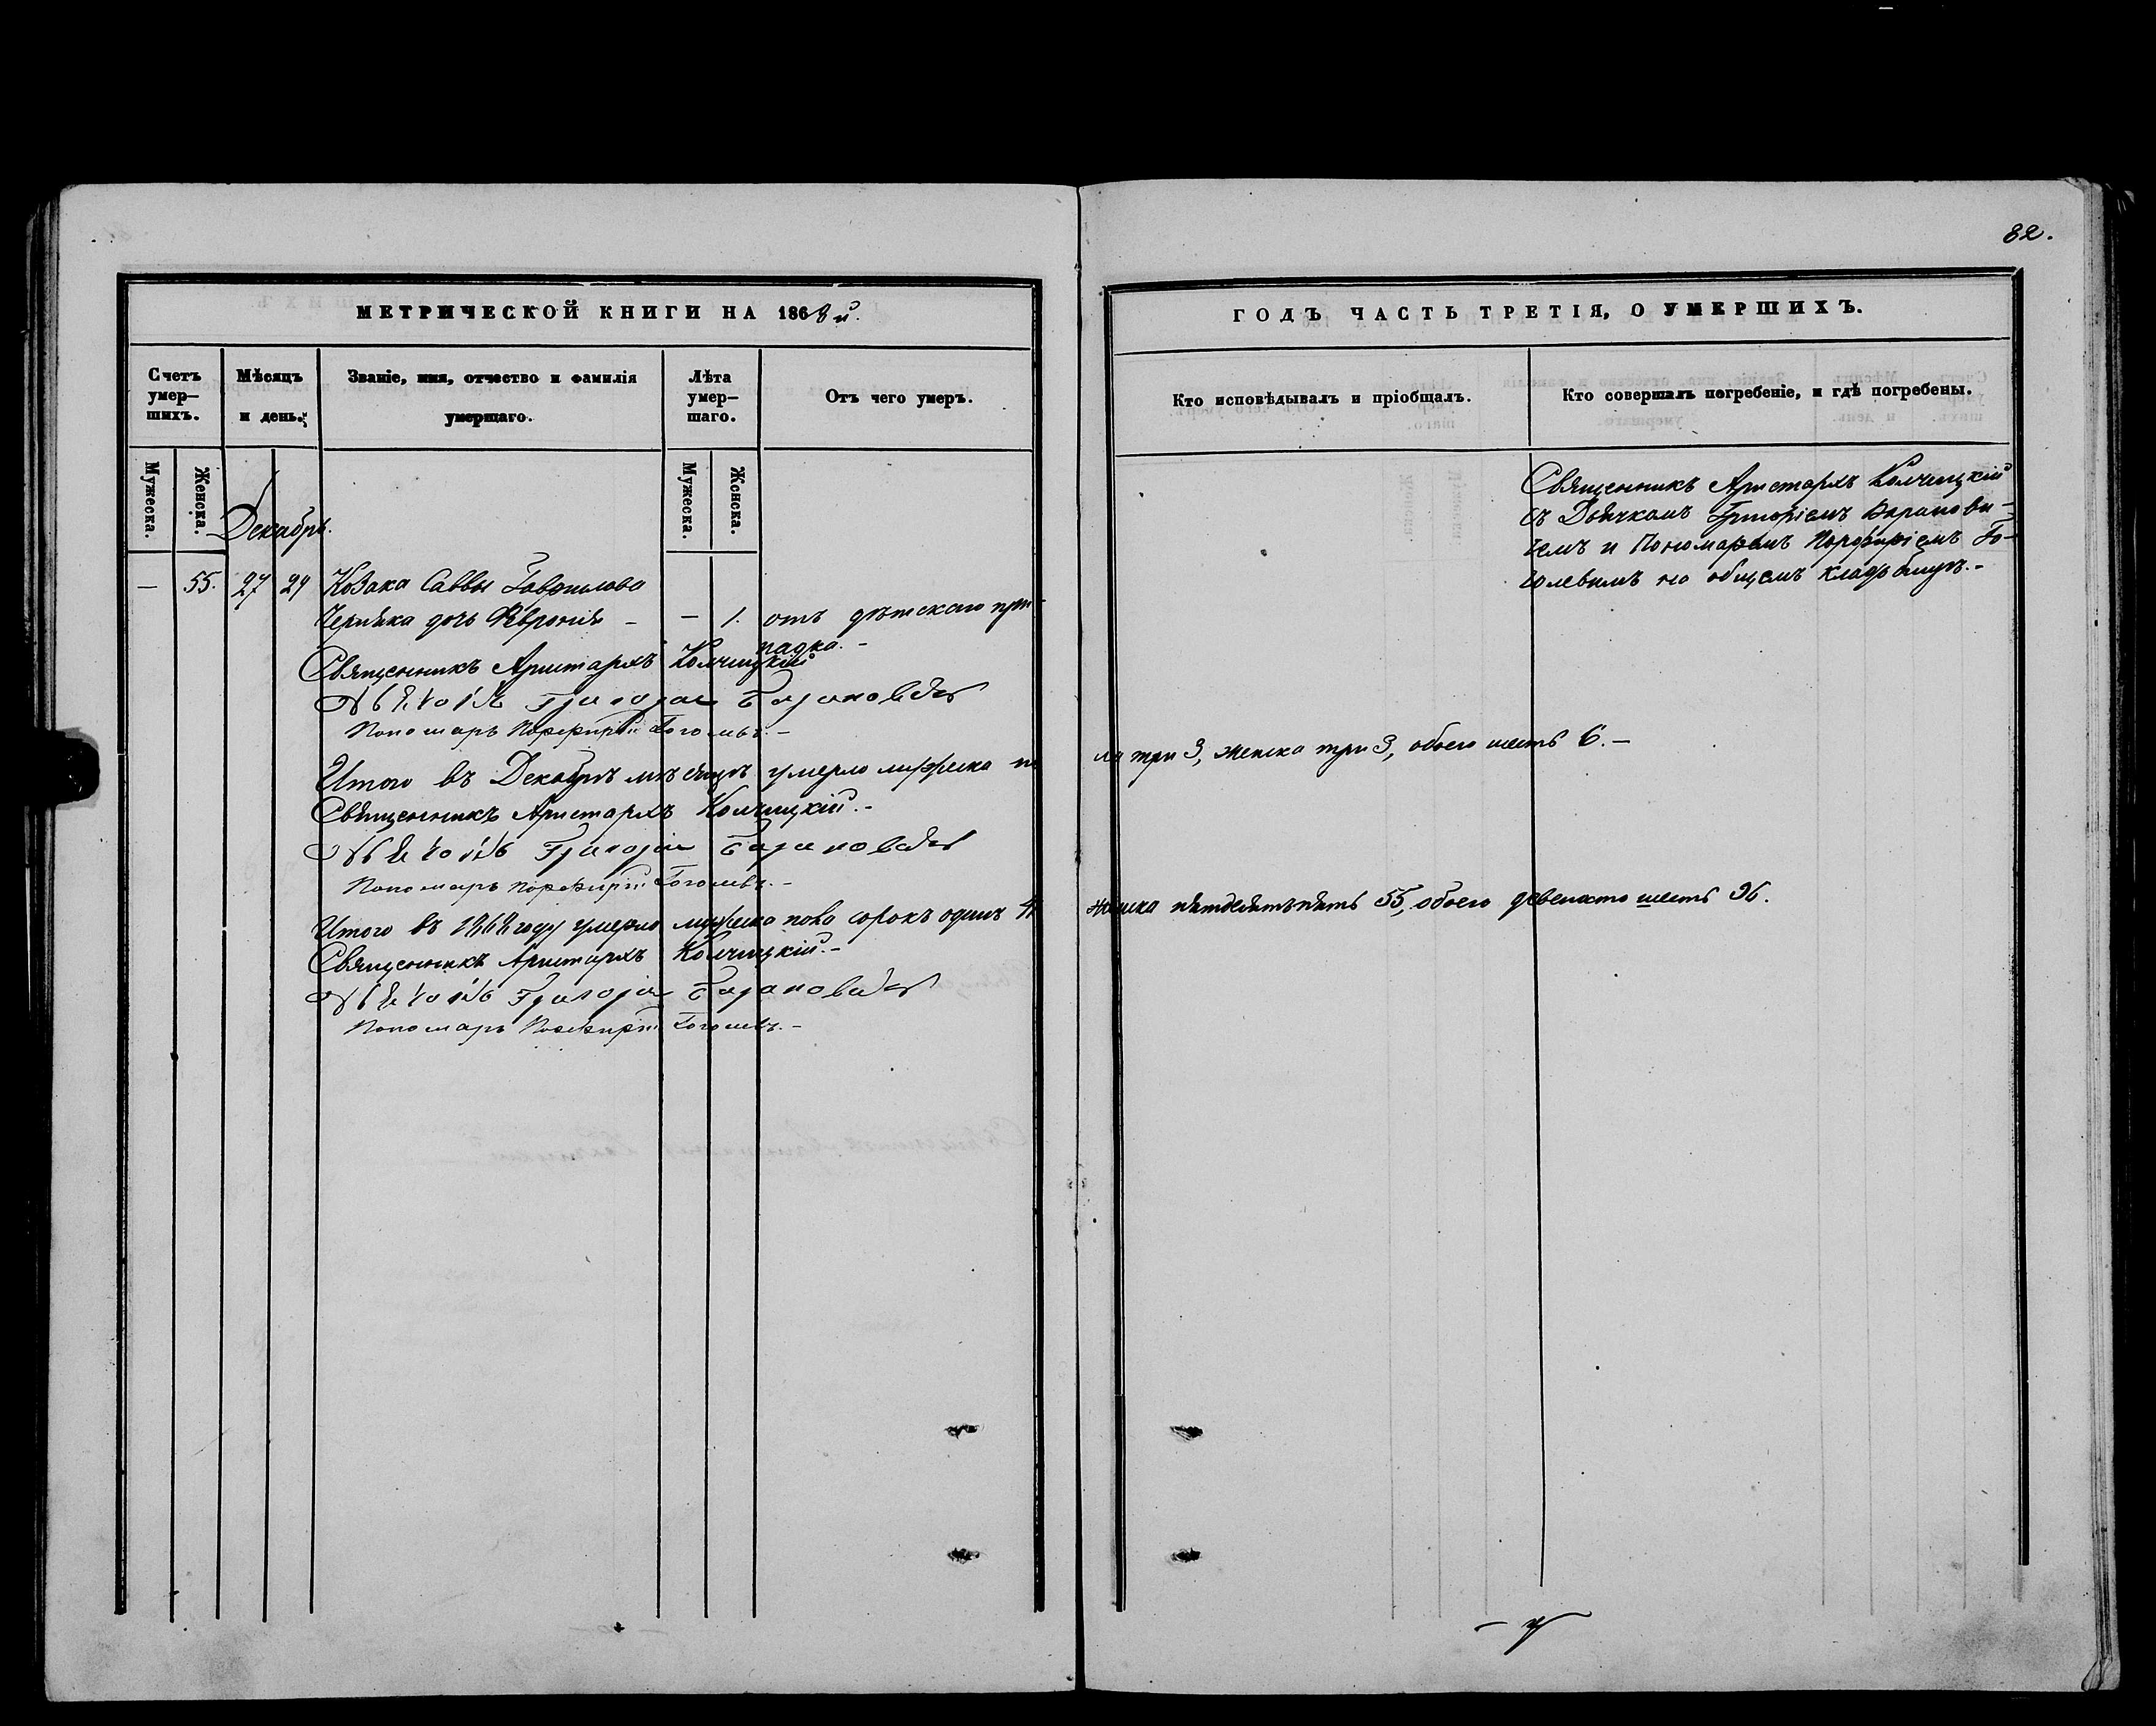 82.
МЕТРИЧЕСКОЙ КНИГИ НА 1868й.
Счетъ умер—шихъ.
Мѣсяцъ и день.
Званіе, имя, отчество и фамилія умершаго.
Лѣта умер—шаго.
Отъ чего умеръ.
Мужеска.
Женска.
Мужеска.
Женска.
Декабрь.
— 55. 27 29 Козака Саввы Гаврилова
Черняка дочь Феврония – — 1. отъ дѣтскаго при-
падка.–
Священникъ Аристархъ Колчицкій
Дьячокъ Григорій Барановичъ
Пономарь Порфирій Гоголевъ.–
Итого въ Декабрѣ мѣсяцѣ умерло мужеска по
Священникъ Аристархъ Колчицкій.–
Дьячокъ Григорій Барановичъ
Пономарь Порфирій Гоголевъ.–
Итого въ 1868 году умерло мужеска пола сорокъ одинъ 41
Священникъ Аристархъ Колчицкій.–
Дьячокъ Григорій Барановичъ
Пономарь Порфирій Гоголевъ.–
ГОДЪ ЧАСТЬ ТРЕТІЯ, О УМЕРШИХЪ.
Кто исповѣдывалъ и пріобщалъ.
Кто совершалъ погребеніе, и гдѣ погребены.
Священникъ Аристархъ Колчицкій
съ Дьячкомъ Григоріемъ Баранови-
чемъ и Пономаремъ Порфиріемъ Го-
голевымъ на общемъ кладбищѣ.–
ла три 3, женска три 3, обоего шесть 6.–
женска пятдесятъпять 55, обоего девеносто шесть 96.